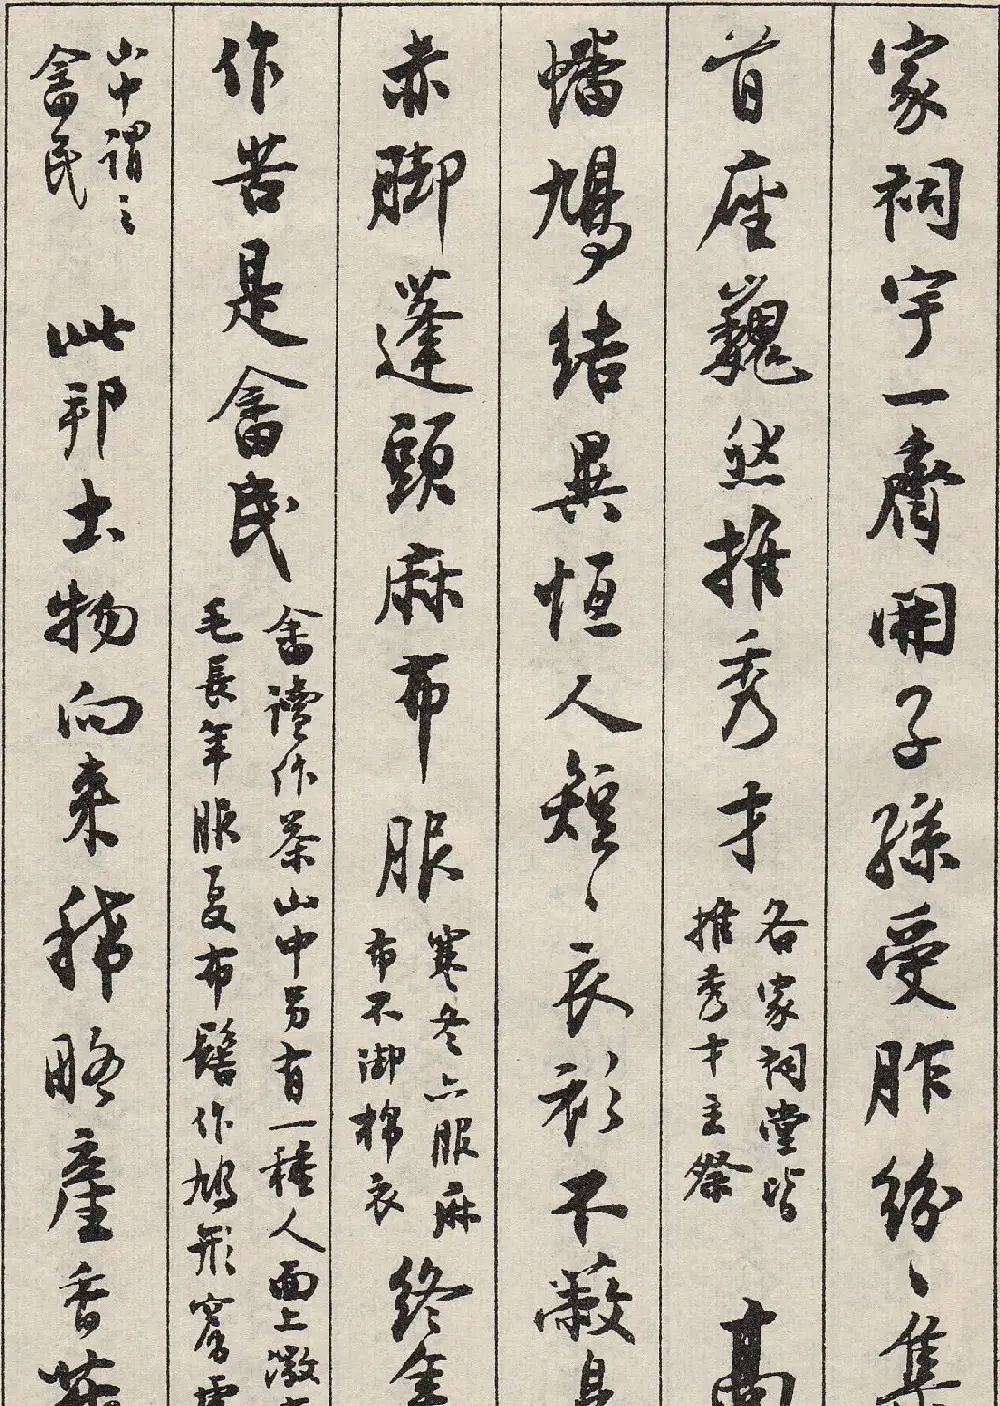 家祠宇一齊開子孫受胙紛〻集
首座巍然推秀才
各家祠堂皆
推秀才主祭
高
蟠鳩結異恒人短〻衣衫不蔽身
赤脚蓬頭麻布服
寒冬亦服麻
布不御棉衣
終年
作苦是畲民
畲讀作茶山中另有一種人面上微有
毛長年服夏布髻作鳩形寄
山中謂之
畲民
此邦土物向来稀略產香